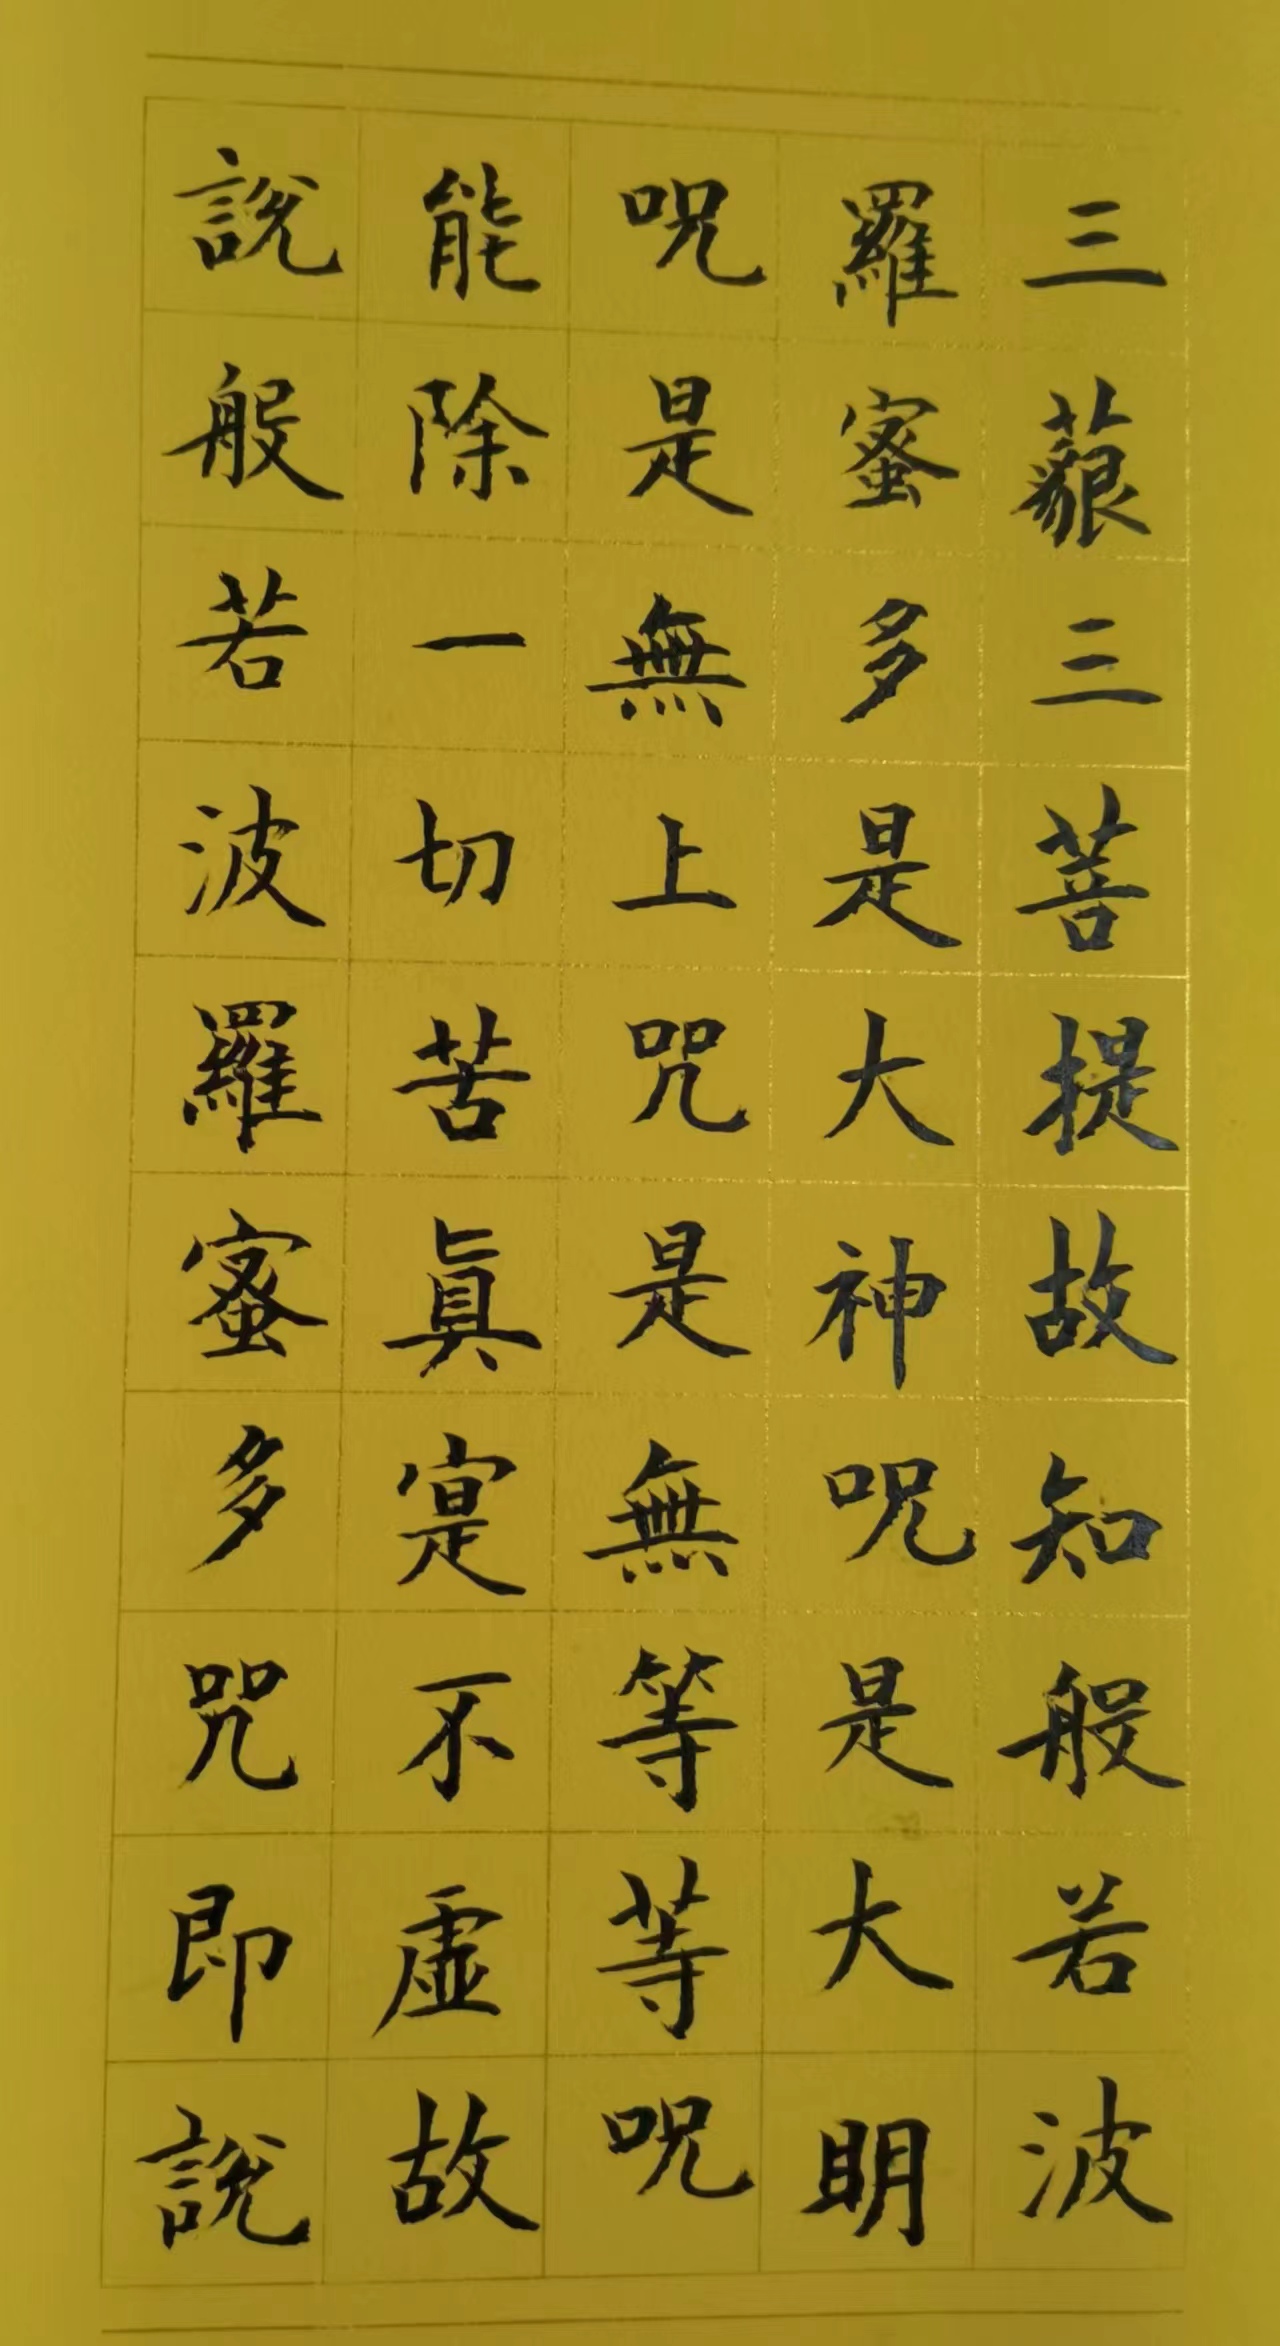 三藐三菩提故知般若波
羅蜜多是大神呪是大明
呪是無上咒是無等等呪
能除一切苦眞寔不虛故
說般若波羅蜜多咒即說